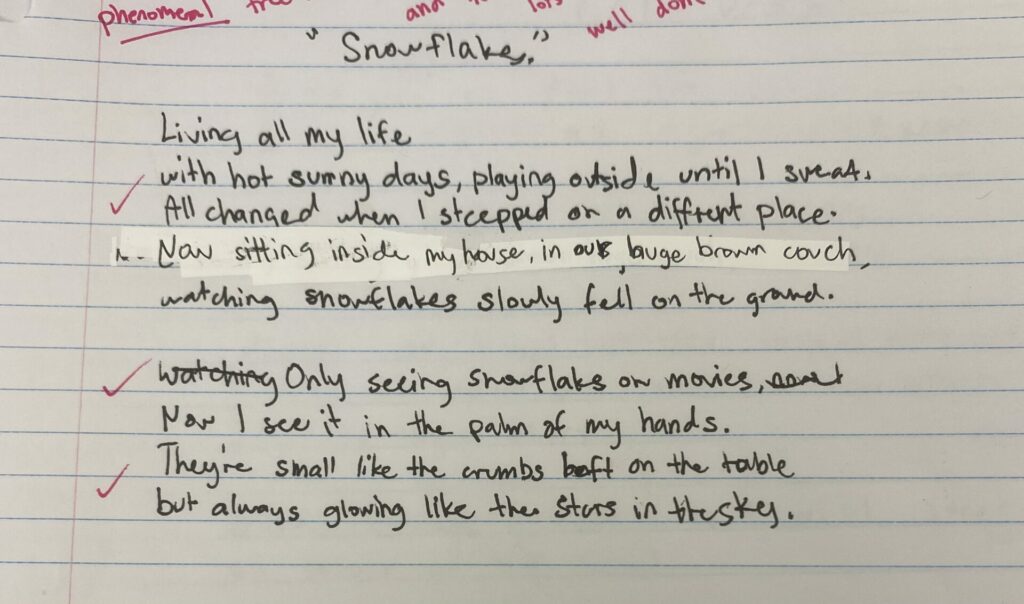 phenomenal free and lots well done
"Snowflake."
Living all my life
with hot sunny days, playing outside until I sweat.
All changed when I stcepped on a diffrent place.
Now sitting inside my house, in our huge brown couch,
watching snowflakes slowly fell on the ground.
watching Only seeing snowflaks on movies,
Now I see it in the palm of my hands.
They're small like the crumbs left on the table
but always glowing like the stars in the sky.